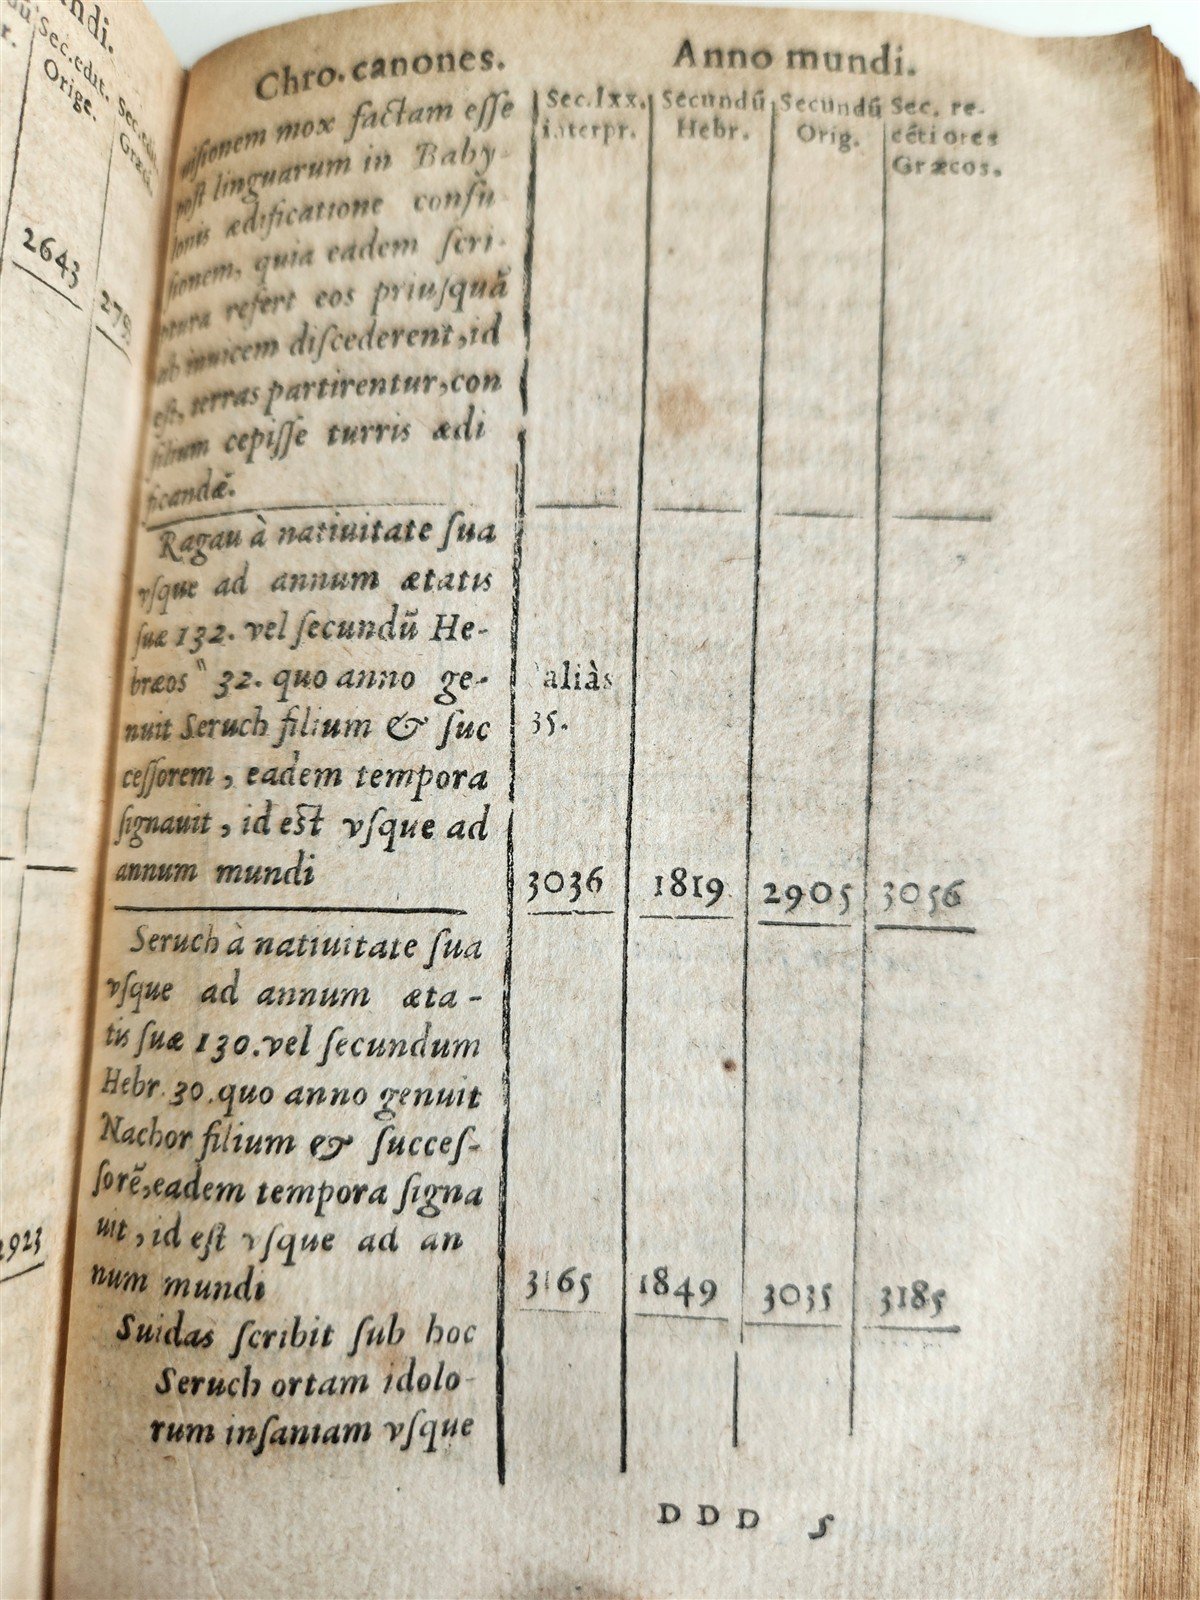 ndi.
Sec.edit.
Orige.
Sec.edit.
Græcis
2643
279
2923
Chro.canones.
Anno mundi.
Sec.lxx.
interpr.
Secundũ
Hebr.
Secundũ
Orig.
Sec. re-
ctiores
Græcos.
uisionem mox factam eſſe
poſt linguarum in Baby-
lonis ædificatione confu
ſionem, quia eadem ſcri-
ptura refert eos priuſquã
ab inuicem diſcederent, id
eſt, terras partirentur, con
ſilium cepiſſe turris ædi
ficandæ.
Ragau à natiuitate ſua
vſque ad annum ætatis
ſuæ 132. vel ſecundũ He-
bræos " 32. quo anno ge-
nuit Seruch filium & ſuc
ceſſorem, eadem tempora
ſignauit, id eſt vſque ad
annum mundi
"aliàs
35.
3036
1819
2905
3056
Seruch à natiuitate ſua
vſque ad annum æta-
tis ſuæ 130. vel ſecundum
Hebr. 30. quo anno genuit
Nachor filium & ſucceſ-
ſorẽ, eadem tempora ſigna
uit, id eſt vſque ad an
num mundi
3165
1849
3035
3185
Suidas ſcribit ſub hoc
Seruch ortam idolo-
rum inſaniam vſque
D D D 5